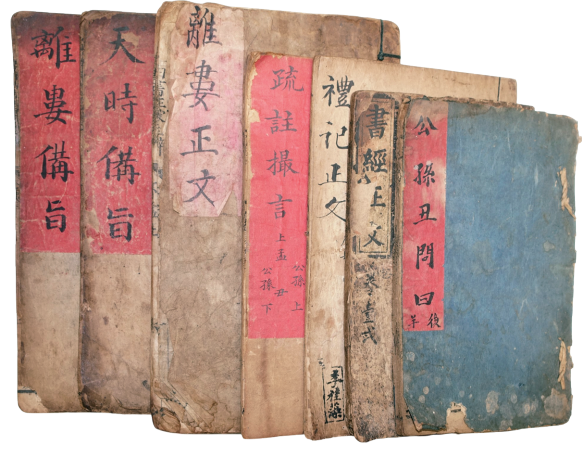 離婁備旨
天時備旨
離婁正文
疏註撮言
上孟
公孫上
丑
公孫下
禮記正文
書經正文
公孫丑問曰
後